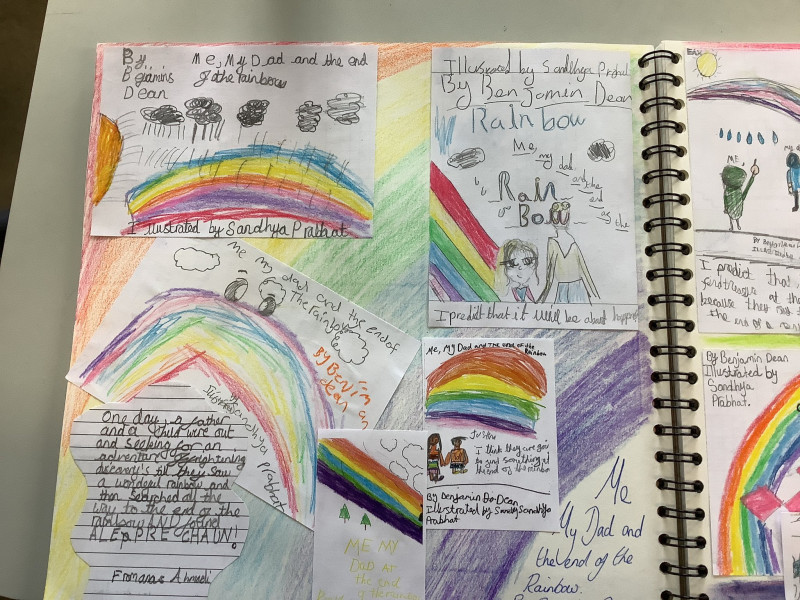 By Me, My Dad and the end
Bejamins of the rainbow
Dean
Illustrated by Sandhya Prabhat
Illustraced by Sandhya Prabhat
By Benjamin Dean
Rainbow
Me,
my dad
and the
end
Rain
Bow
of the
I predict that it will be about happyness
me my dad and the end of
The rainbow
By Benjm
dean
Illustrated Sandhya Prabhat
One day, a father
and a child were out
and seeking for an
adventure
discovery's till they saw
a wonderful rainbow and
then serched all the
way to the end of the
rainbow AND found
A LEpPRE CHAUN!
Me, My Dad and the end of the
Rainbow
I think they are goin
to find something at
the end of the rainbow
By Benjamin De Dean
Illustrated by Sandhya
Prabhat
ME MY
Dad At
the end
of the rainbow
Me
My Dad and
the end of the
Rainbow.
ME,
I predict that
at the
because they
the end of a
By Benjamin Dean
Illustrated by
Sandhya
Prabhat.